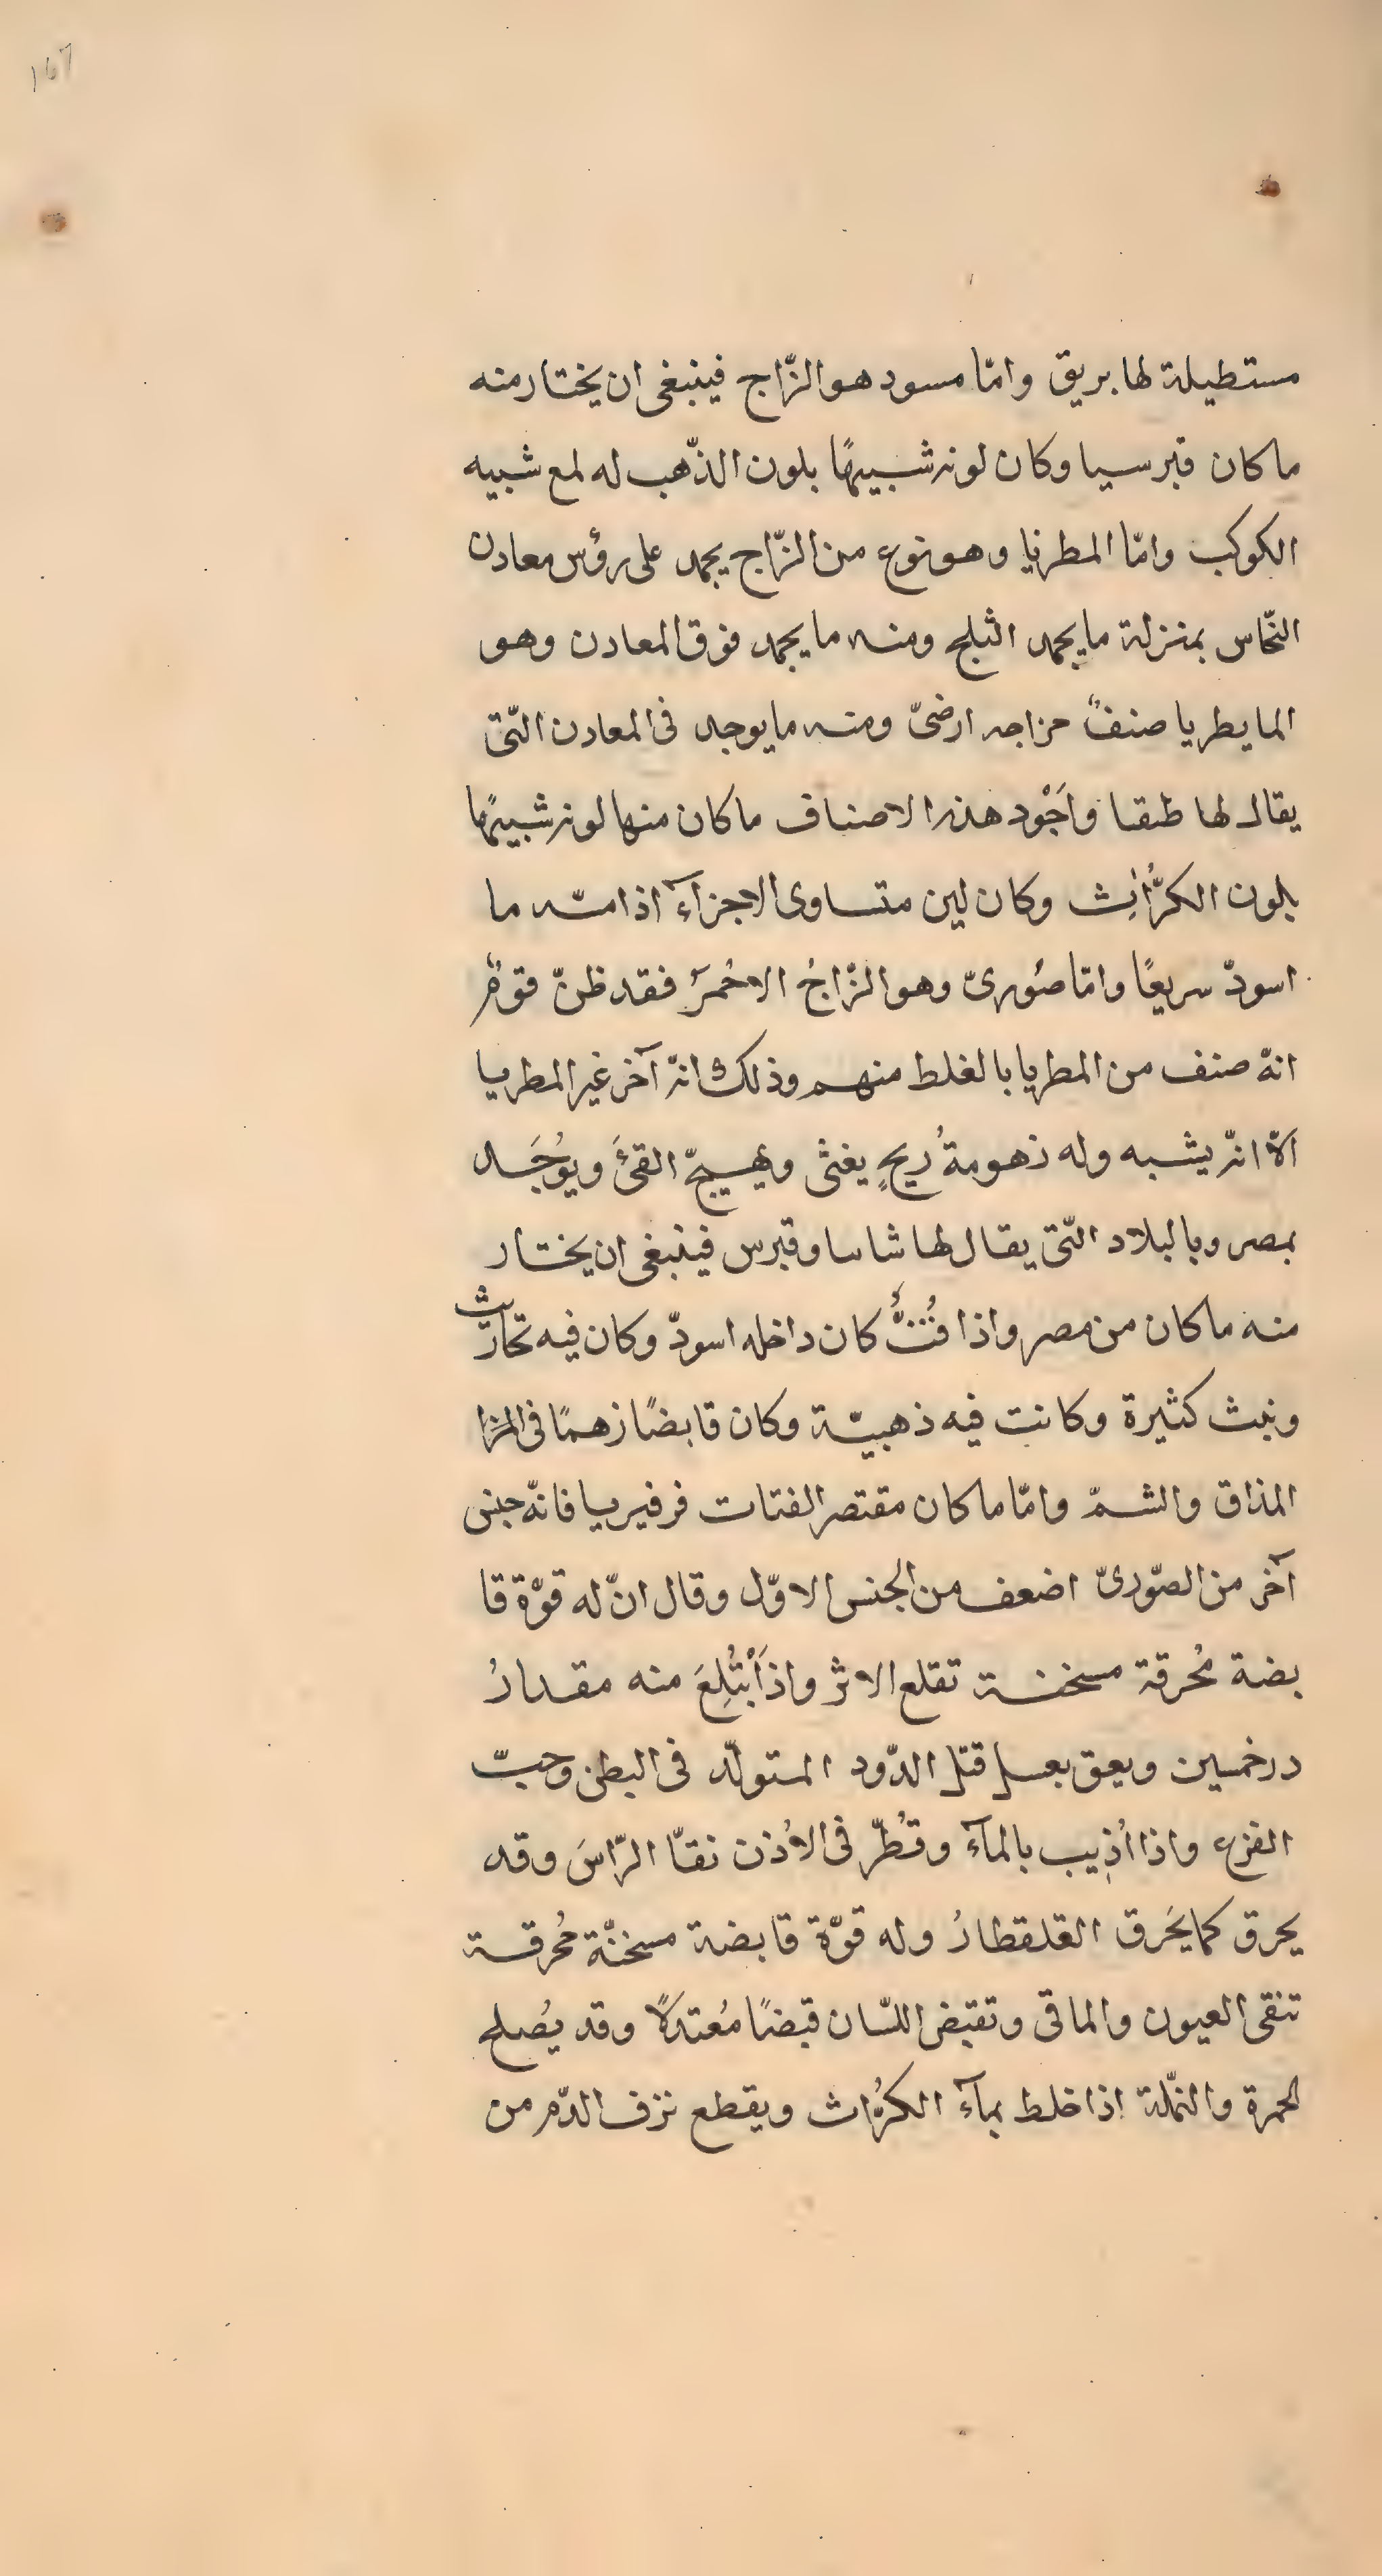 167
مستطيلة لها بريق وامّا مسود هو الزّاج فينبغى ان يختار منه
ما كان قبرسيا وكان لونه شبيهًا بلون الذّهب له لمع شبيه
الكوكب وامّا المطرنا وهو نوع من الزّاج يجمد على رؤس معادن
النّحاس بمنزلة ما يجمد الثلج ومنه ما يجمد فوق المعادن وهو
المايطريا صنفٌ مزاجه ارضىّ ومنه ما يوجد فى المعادن الّتى
يقال لها طقا وأَجْود هذه الاصناف ما كان منها لونه شبيهًا
بلون الكرُّاث وكان لين متساوى الاجزآء اذا مسّه ما
اسودّ سريعًا وامّا صُورىّ وهو الزّاجُ الاحُمرَ فقد ظنّ قومٌ
انّه صنف من المطريا بالغلط منهم وذلك انّه آخر غير المطريا
الاّ انّه يشبه وله زهومةُ ريحٍ يغثى ويهيجّ القئَ ويوُجَد
بمصر وبالبلاد الّتى يقال لها شاسا وقبرس فينبغى ان يختار
منه ما كان من مصر واذا فُتتُّ كان داخله اسودّ وكان فيه
كثيرة وكانت فيه ذهبيّة وكان قابضًا زهمًا فى
المذاق والشمّ وامّا ما كان مقتصر الفتات فرفيريا فانّه جنس
آخر من الصّورىّ اضعف من الجنس الاوّل وقال انّ له قوّة قا
بضة مُحرقة مسخنة تقلع الاثر واذا ابْتُلِعَ منه مقدارُ
درخمين ويعق بعسل قتل الدّود المتولّد فى البطن وحبّ
القرع واذا اُذيب بالمآء وقُطّر فى الأذن نقّا الرّاسَ وقد
يحرق كما يَحرق القلقطارُ وله قوّة قابضة مسخنّة مُحرقة
تنقى العيون والماقى وتقبض اللسّان قبضًا مُعتدلًا وقد يُصلح
الحمرة والنمّلة اذا خلط بمآء الكرُّاث ويقطع نزف الدّم من